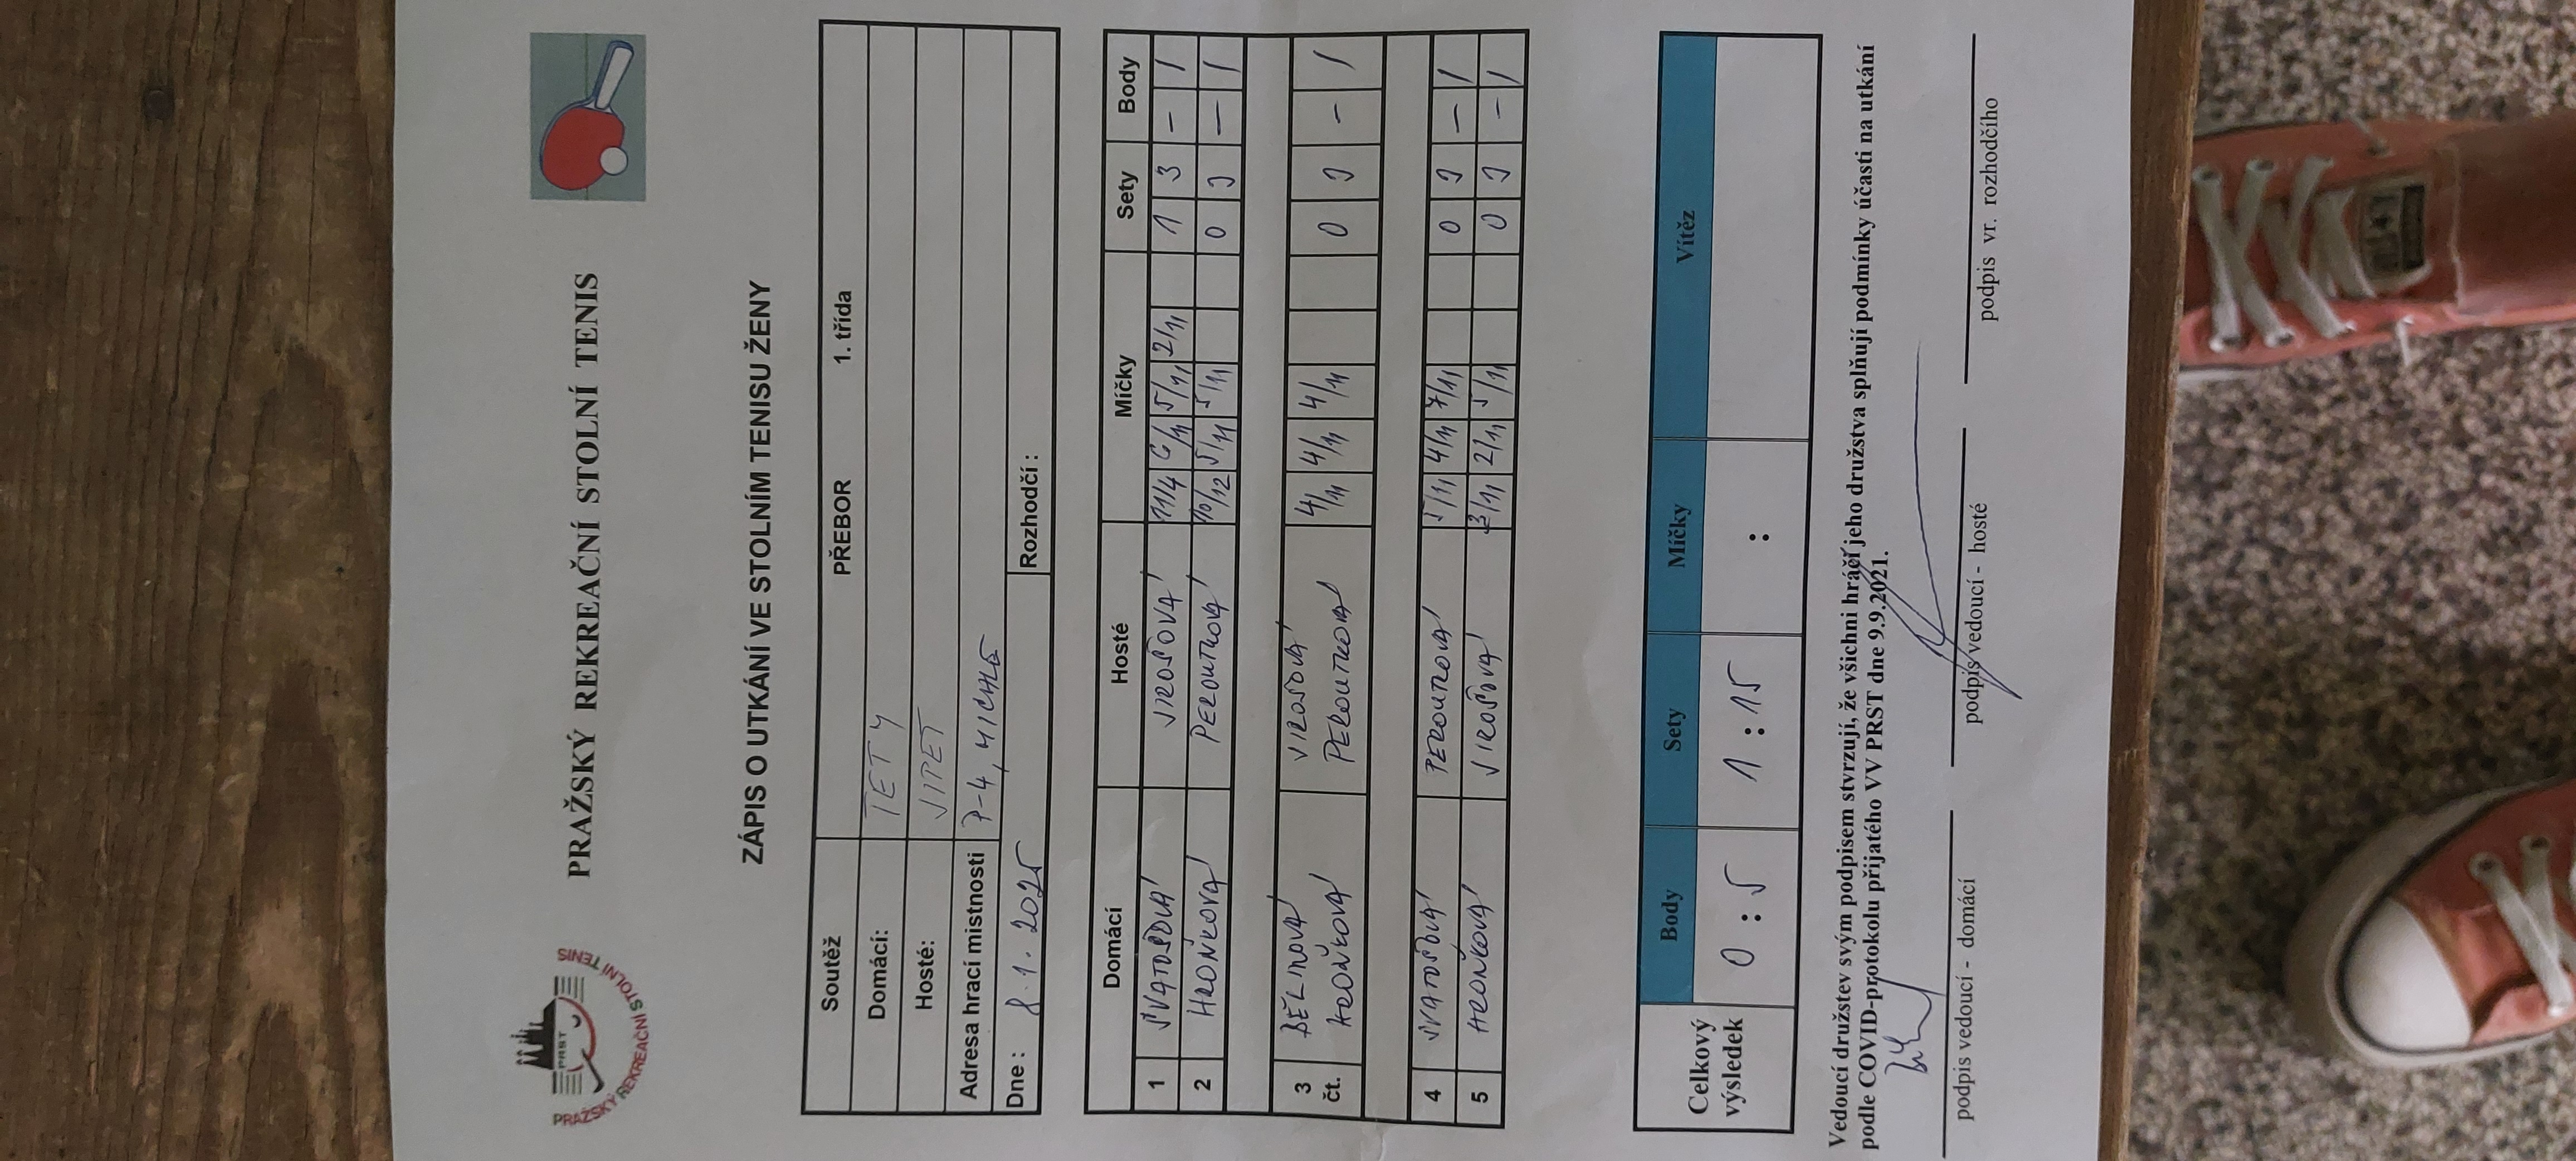 PRAŽSKÝ REKREAČNÍ STOLNÍ TENIS
PRST
PRAŽSKÝ REKREAČNÍ STOLNÍ TENIS
ZÁPIS O UTKÁNÍ VE STOLNÍM TENISU ŽENY
Soutěž PŘEBOR 1. třída
Domácí: TETY
Hosté: VIPET
Adresa hrací mistnosti P-4, MICHLE
Dne : 8. 1. 2025 Rozhodčí :
Domácí Hosté Míčky Sety Body
1 SVATOŠOVÁ VIROSŤOVÁ 11/4 6/11 5/11 2/11 1 3 – 1
2 HROŇKOVÁ PEROUTKOVÁ 10/12 5/11 5/11 0 3 – 1
3 BĚLINOVÁ 4/11 4/11 4/11 0 3 – 1
čt. HROŇKOVÁ PEROUTKOVÁ
4 SVATOŠOVÁ PEROUTKOVÁ 5/11 4/11 7/11 0 3 – 1
5 HROŇKOVÁ 3/11 2/11 5/11 0 3 – 1
Body Sety Míčky Vítěz
Celkový výsledek 0 : 5 1 : 15 :
Vedoucí družstev svým podpisem stvrzují, že všichni hráči jeho družstva splňují podmínky účasti na utkání
podle COVID-protokolu přijatého VV PRST dne 9.9.2021.
podpis vedoucí - domácí podpis vedoucí - hosté podpis vr. rozhodčího